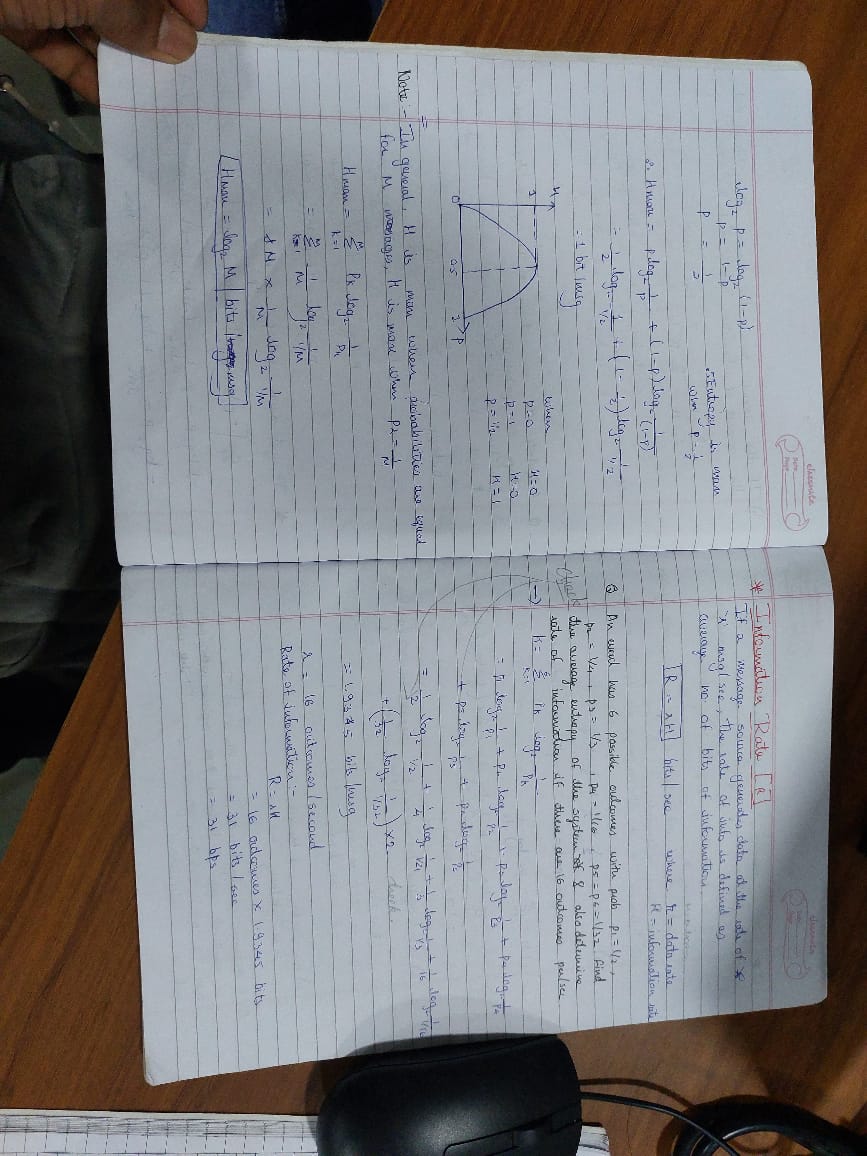 classmate
Date
Page
log₂ P = log₂ (1-P)
P = 1-P
P = 1/2
∴ Entropy is max
when P = 1/2
∴ Hmax = P log₂ 1/P + (1-P) log₂ 1/(1-P)
= 1/2 log₂ 1/1/2 + (1-1/2) log₂ 1/1/2
= 1 bit/msg
H
1
0
0.5
1
P
when
P=0 H=0
P=1 H=0
P=1/2 H=1
Note:- In general, H is max when probabilities are equal
for M messages, H is max when Pk = 1/M
Hmax = M Σ k=1 Pk log₂ 1/Pk
= M Σ k=1 1/M log₂ 1/1/M
= M × 1/M log₂ 1/1/M
Hmax = log₂ M bits/msg
classmate
Date
Page
* Information Rate [R]
If a message source generates data at the rate of
'r' msg/sec, the rate of info is defined as
average no. of bits of information.
R = rH bits/sec where r = data rate
H = information rate
Q An event has 6 possible outcomes with prob P1 = 1/2,
P2 = 1/4, P3 = 1/3, P4 = 1/16, P5 = P6 = 1/32. Find
the average entropy of the system & also determine
rate of information if there are 16 outcomes per/sec
→ H = 6 Σ k=1 Pk log₂ 1/Pk
= P1 log₂ 1/P1 + P2 log₂ 1/P2 + P3 log₂ 1/P3 + P4 log₂ 1/P4
= 1/2 log₂ 1/1/2 + 1/4 log₂ 1/1/4 + 1/3 log₂ 1/1/3 + 1/16 log₂ 1/1/16
+ (1/32 log₂ 1/1/32) × 2
= 1.9345 bits/msg
r = 16 outcomes/second
Rate of information:-
R = rH
= 16 outcomes × 1.9345 bits
= 31 bits/sec
= 31 bps